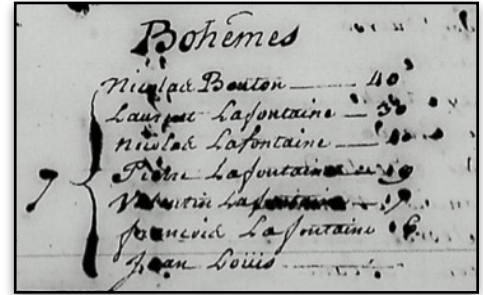 Bohêmes
Nicolas Bouton — 40
Laurent Lafontaine — 30
Nicolas Lafontaine —
7 Pierre Lafontaine — 19
Valentin Lafontaine —
françois Lafontaine 16
Jean Loüis —